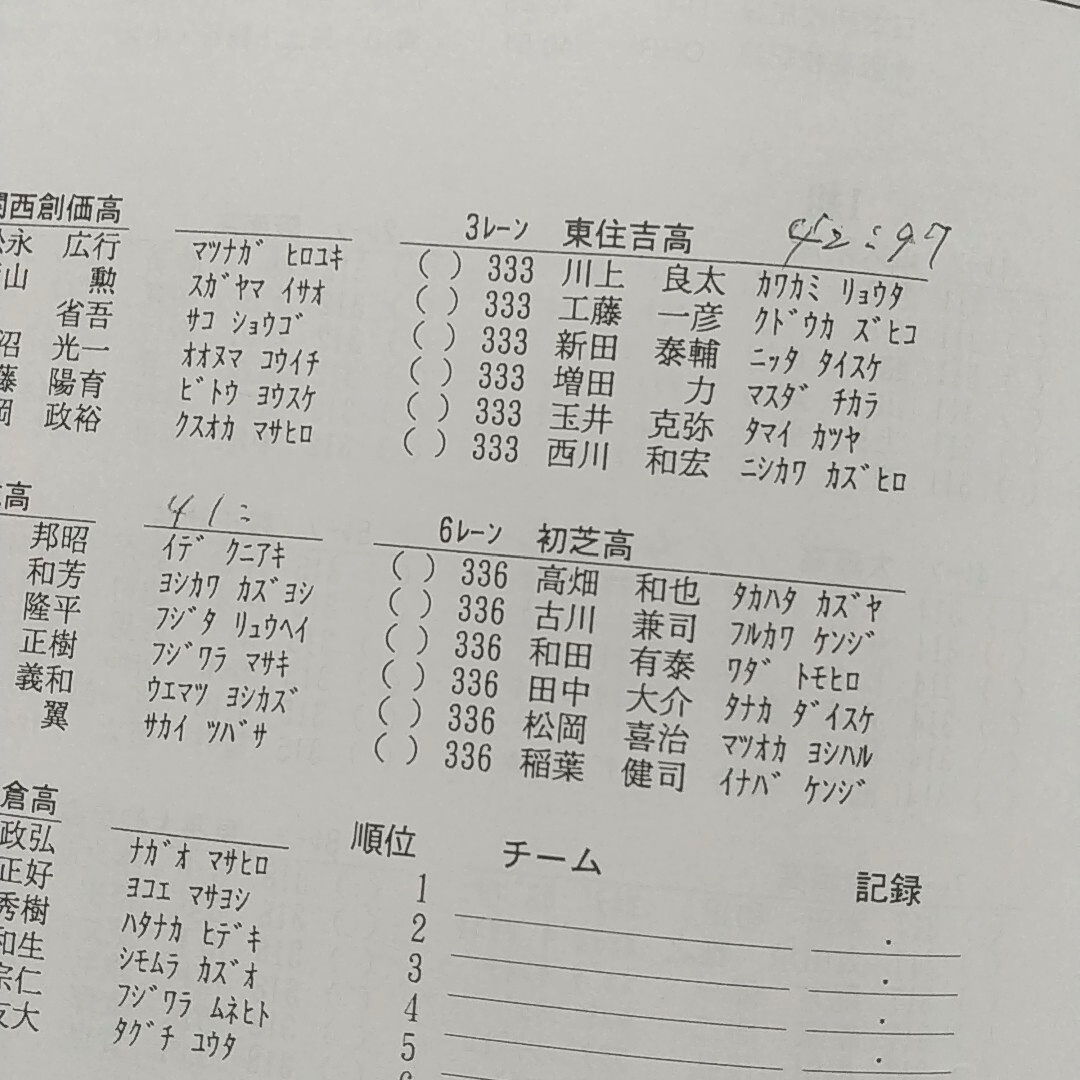 関西創価高
松永 広行 マツナガ ヒロユキ
山 勲 スガヤマ イサオ
省吾 サコ ショウゴ
沼 光一 オオヌマ コウイチ
藤 陽育 ビトウ ヨウスケ
岡 政裕 クスオカ マサヒロ
3レーン 東住吉高 42:97
( ) 333 川上 良太 カワカミ リョウタ
( ) 333 工藤 一彦 クドウカ ズヒコ
( ) 333 新田 泰輔 ニッタ タイスケ
( ) 333 増田 力 マスダ チカラ
( ) 333 玉井 克弥 タマイ カツヤ
( ) 333 西川 和宏 ニシカワ カズヒロ
高 41:
邦昭 イデ クニアキ
和芳 ヨシカワ カズヨシ
隆平 フジタ リュウヘイ
正樹 フジワラ マサキ
義和 ウエマツ ヨシカズ
翼 サカイ ツバサ
6レーン 初芝高
( ) 336 高畑 和也 タカハタ カズヤ
( ) 336 古川 兼司 フルカワ ケンジ
( ) 336 和田 有泰 ワダ トモヒロ
( ) 336 田中 大介 タナカ ダイスケ
( ) 336 松岡 喜治 マツオカ ヨシハル
( ) 336 稲葉 健司 イナバ ケンジ
倉高
政弘 ナガオ マサヒロ
正好 ヨコエ マサヨシ
秀樹 ハタナカ ヒデキ
和生 シモムラ カズオ
宗仁 フジワラ ムネヒト
友大 タグチ ユウタ
順位 チーム 記録
1 .
2 .
3 .
4 .
5